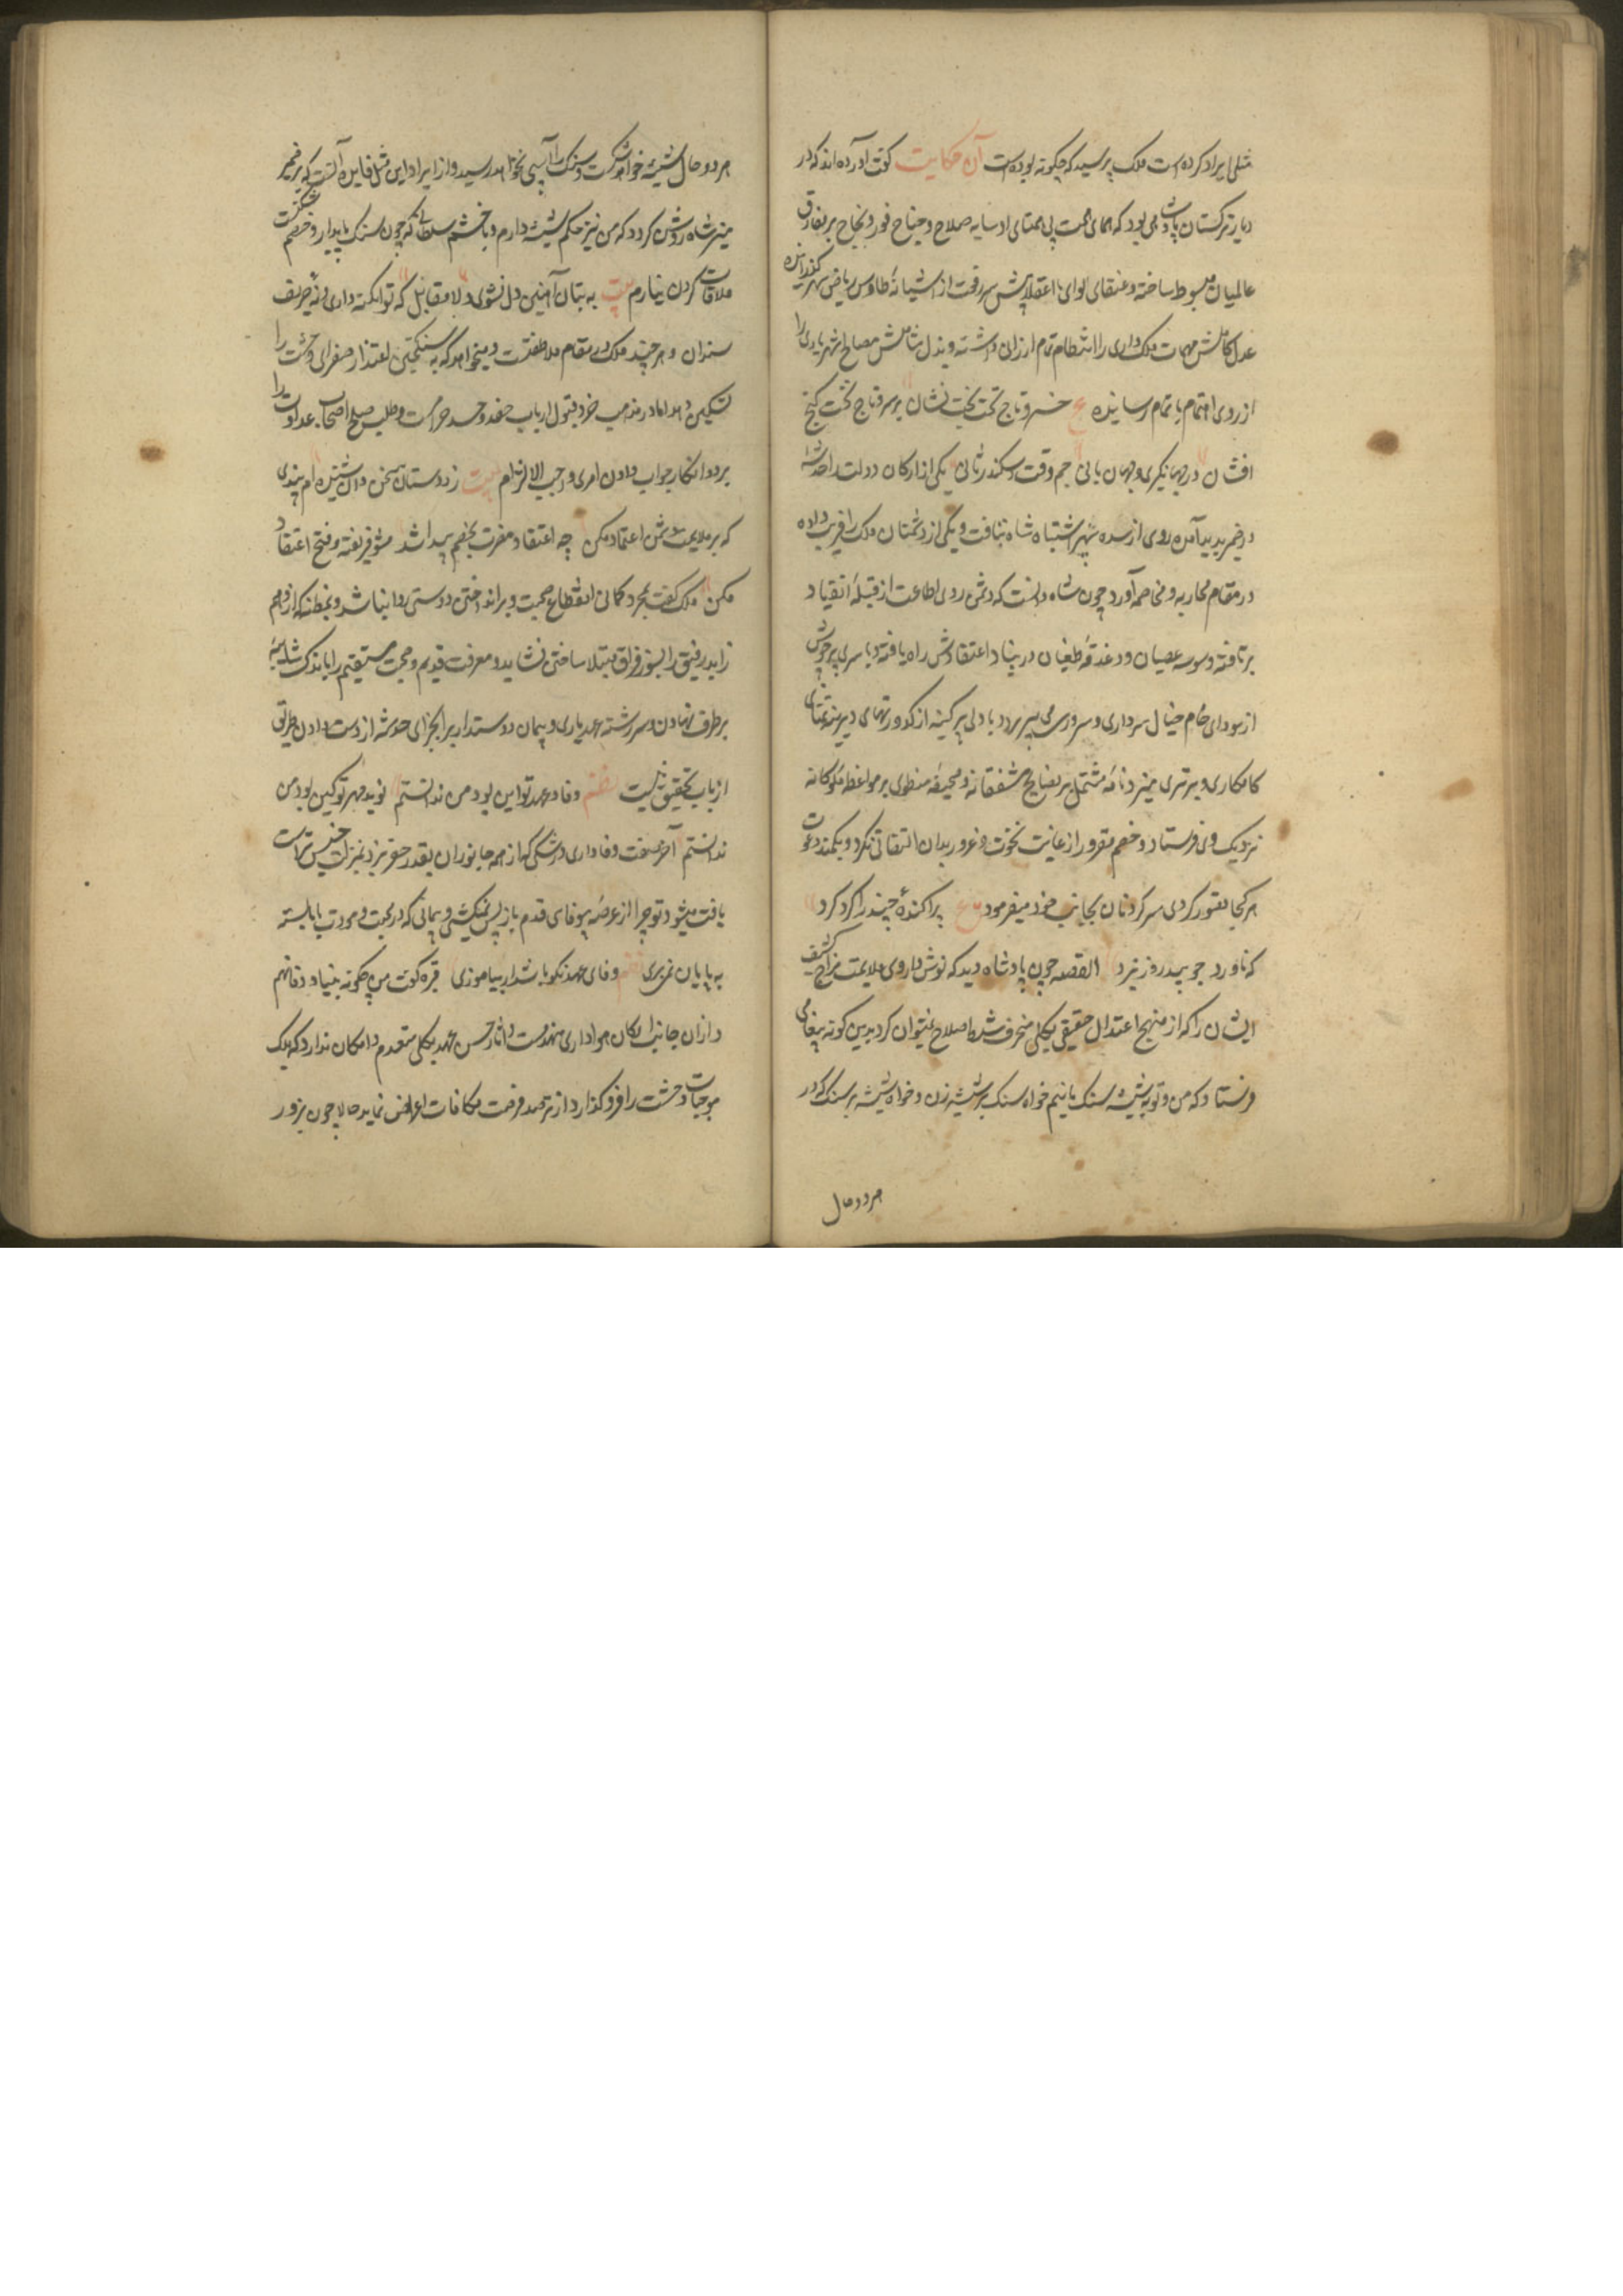 مثلی ایراد کرده است ملک پرسید که چگونه بوده است آن حکایت گفت آورده‌اند که در
دیار ترکستان پادشاهی بود که همای همت بی همتای او سایه صلاح و جناح فوز و نجاح بر مفارق
عالمیان مبسوط ساخته و عنقای لوای با اعتلایش سر رفعت از آشیانه طاوس ریاض سپهر گذرانیده
عدل کاملش مهمات ملک‌داری را انتظام تمام ارزانی داشته و بذل شاملش مصالح شهریاری را
از روی اهتمام باتمام رسانیده ع خسرو تاج تخت بخت نشان بر سر و تاج تخت گنج
افشان در جهانگیری و جهان بانی جم وقت و سکندر ثانی یکی از ارکان دولت را خدشه
در ضمیر پدید آمد روی از سده سپهر اشتباه شاه بتافت و یکی از دشمنان ملک را فریب داده
در مقام محاربه و مخاصمه آورد چون شاه دانست که دشمن روی اطاعت از قبله انقیاد
برتافته وسوسه عصیان و دغدغه طغیان در بنیاد اعتقادش راه یافته و با سری پر جوش
از سودای خام خیال سرداری و سروری می‌پرورد با دلی پر کینه از کدورتهای دیرینه تمنای
کامکاری و برتری میزد نامه مشتمل بر نصایح مشفقانه و صحیفه منطوی بر مواعظ ملوکانه
نزدیک وی فرستاد و خصم مغرور از غایت نخوت و غرور بدان التفاتی نکرد و بکمند دعوت
هر کجا تصور کردی سر کردنان بجانب خود میفرمود ع پراکنده چند را گرد کرد
که ناورد جوید روز نبرد القصه چون پادشاه دید که نوش داروی ملایمت مزاج کثیف
ایشان را که از منهج اعتدال حقیقی بکلی منحرف شده اصلاح نمیتوان کرد بدین گونه پیغامی
فرستاد که من و تو بشیشه و سنگ مانیم خواه سنگ بر شیشه زن و خواه شیشه بر سنگ که در
هر دو حال
هر دو حال شیشه خواهد شکست و سنگ را آسیبی نخواهد رسید و از ایراد این مثل فایده آنست که بر ضمیر
منیر شاه روشن کردد که من نیز حکم شیشه دارم و با خشم سلطانی که چون سنگ پایدار و خصم شکنست
ملاقات کردن نیارم بیت به بتان آهنین دل نشوی دلا مقابل که تو آبگینه داری و نه حریف
سندان و هر چند ملک در مقام ملاطفتست و میخواهد که به سکنجبین اعتذار صفرای وحشت را
تسکین دهد اما در مذهب خرد قبول ارباب حقد و حسد حرامست و طلب صلح اصحاب عداوت را
برد و انکار جواب دادن امری واجب الالتزام بیت ز دوستان سخن دان شنیده‌ام پندی
که بر ملایمت دشمن اعتماد مکن چه اعتقاد مضرت بخصم پیدا شد مشو فریفته و فتح اعتقاد
مکن ملک گفت بمجرد گمانی انقطاع صحبت و برانداختن دوستی روا نباشد و بمظنه که از وهم
زاید رفیق را بسوز فراق مبتلا ساختن نشاید و معرفت قدیم و محبت مستقیم را باندک شایبه
بر طرف نهادن و سررشته عهد یاری و پیمان دوستداری را بجزای خدشه از دست دادن طریق
ارباب تحقیق نیست نظم وفا و عهد تو این بود من ندانستم نوید مهر تو کین بود من
ندانستم آخر صفت وفاداری در سگی که از همه جانوران بقدر حقیرتر و بمنزلت خسیس تراست
یافت میشود تو چرا از عرصه بیوفای قدم باز پس نمیکشی و پیمانی که در محبت و مودت با ما بسته
به پایان نمی‌بری نظم وفای عهد نکو باشد ار بیاموزی قبره گفت من چگونه بنیاد وفا نهم
و از آن جانب ارکان هواداری منهدمست و آثار حسن عهد بکلی منعدم و امکان ندارد که ملک
موجبات وحشت را فرو گذارد از ترصد فرصت مکافات اعراض نماید حالا چون بزور